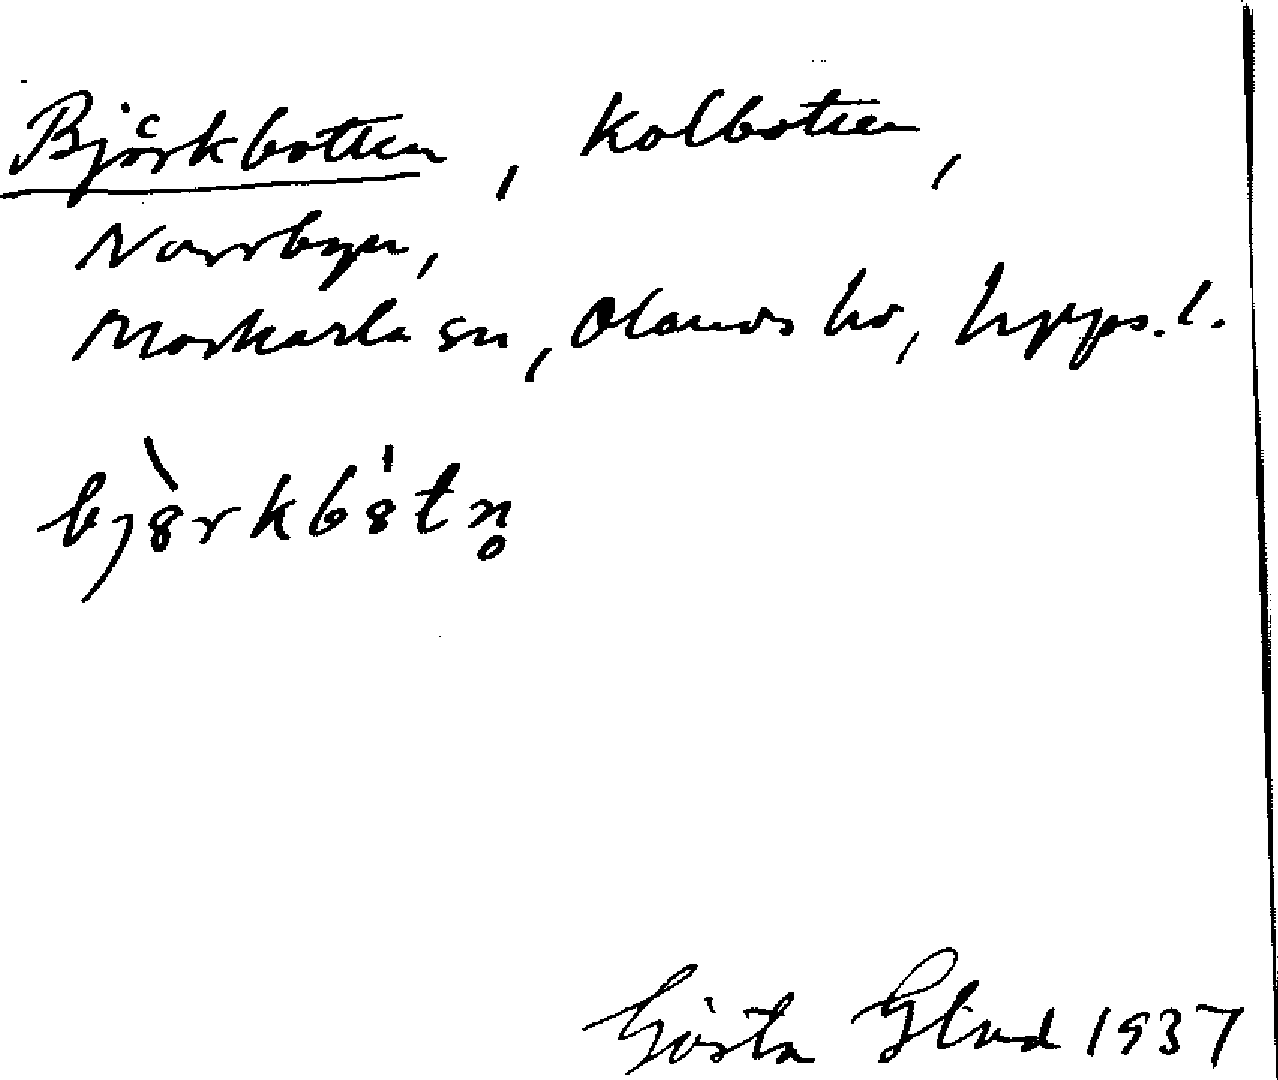 Björkbotten, kolbotten,
Norrbyn,
Morkarla sn, Olands hd, Upps. l.
bjòrkbòtn̥
Gösta Glad 1937